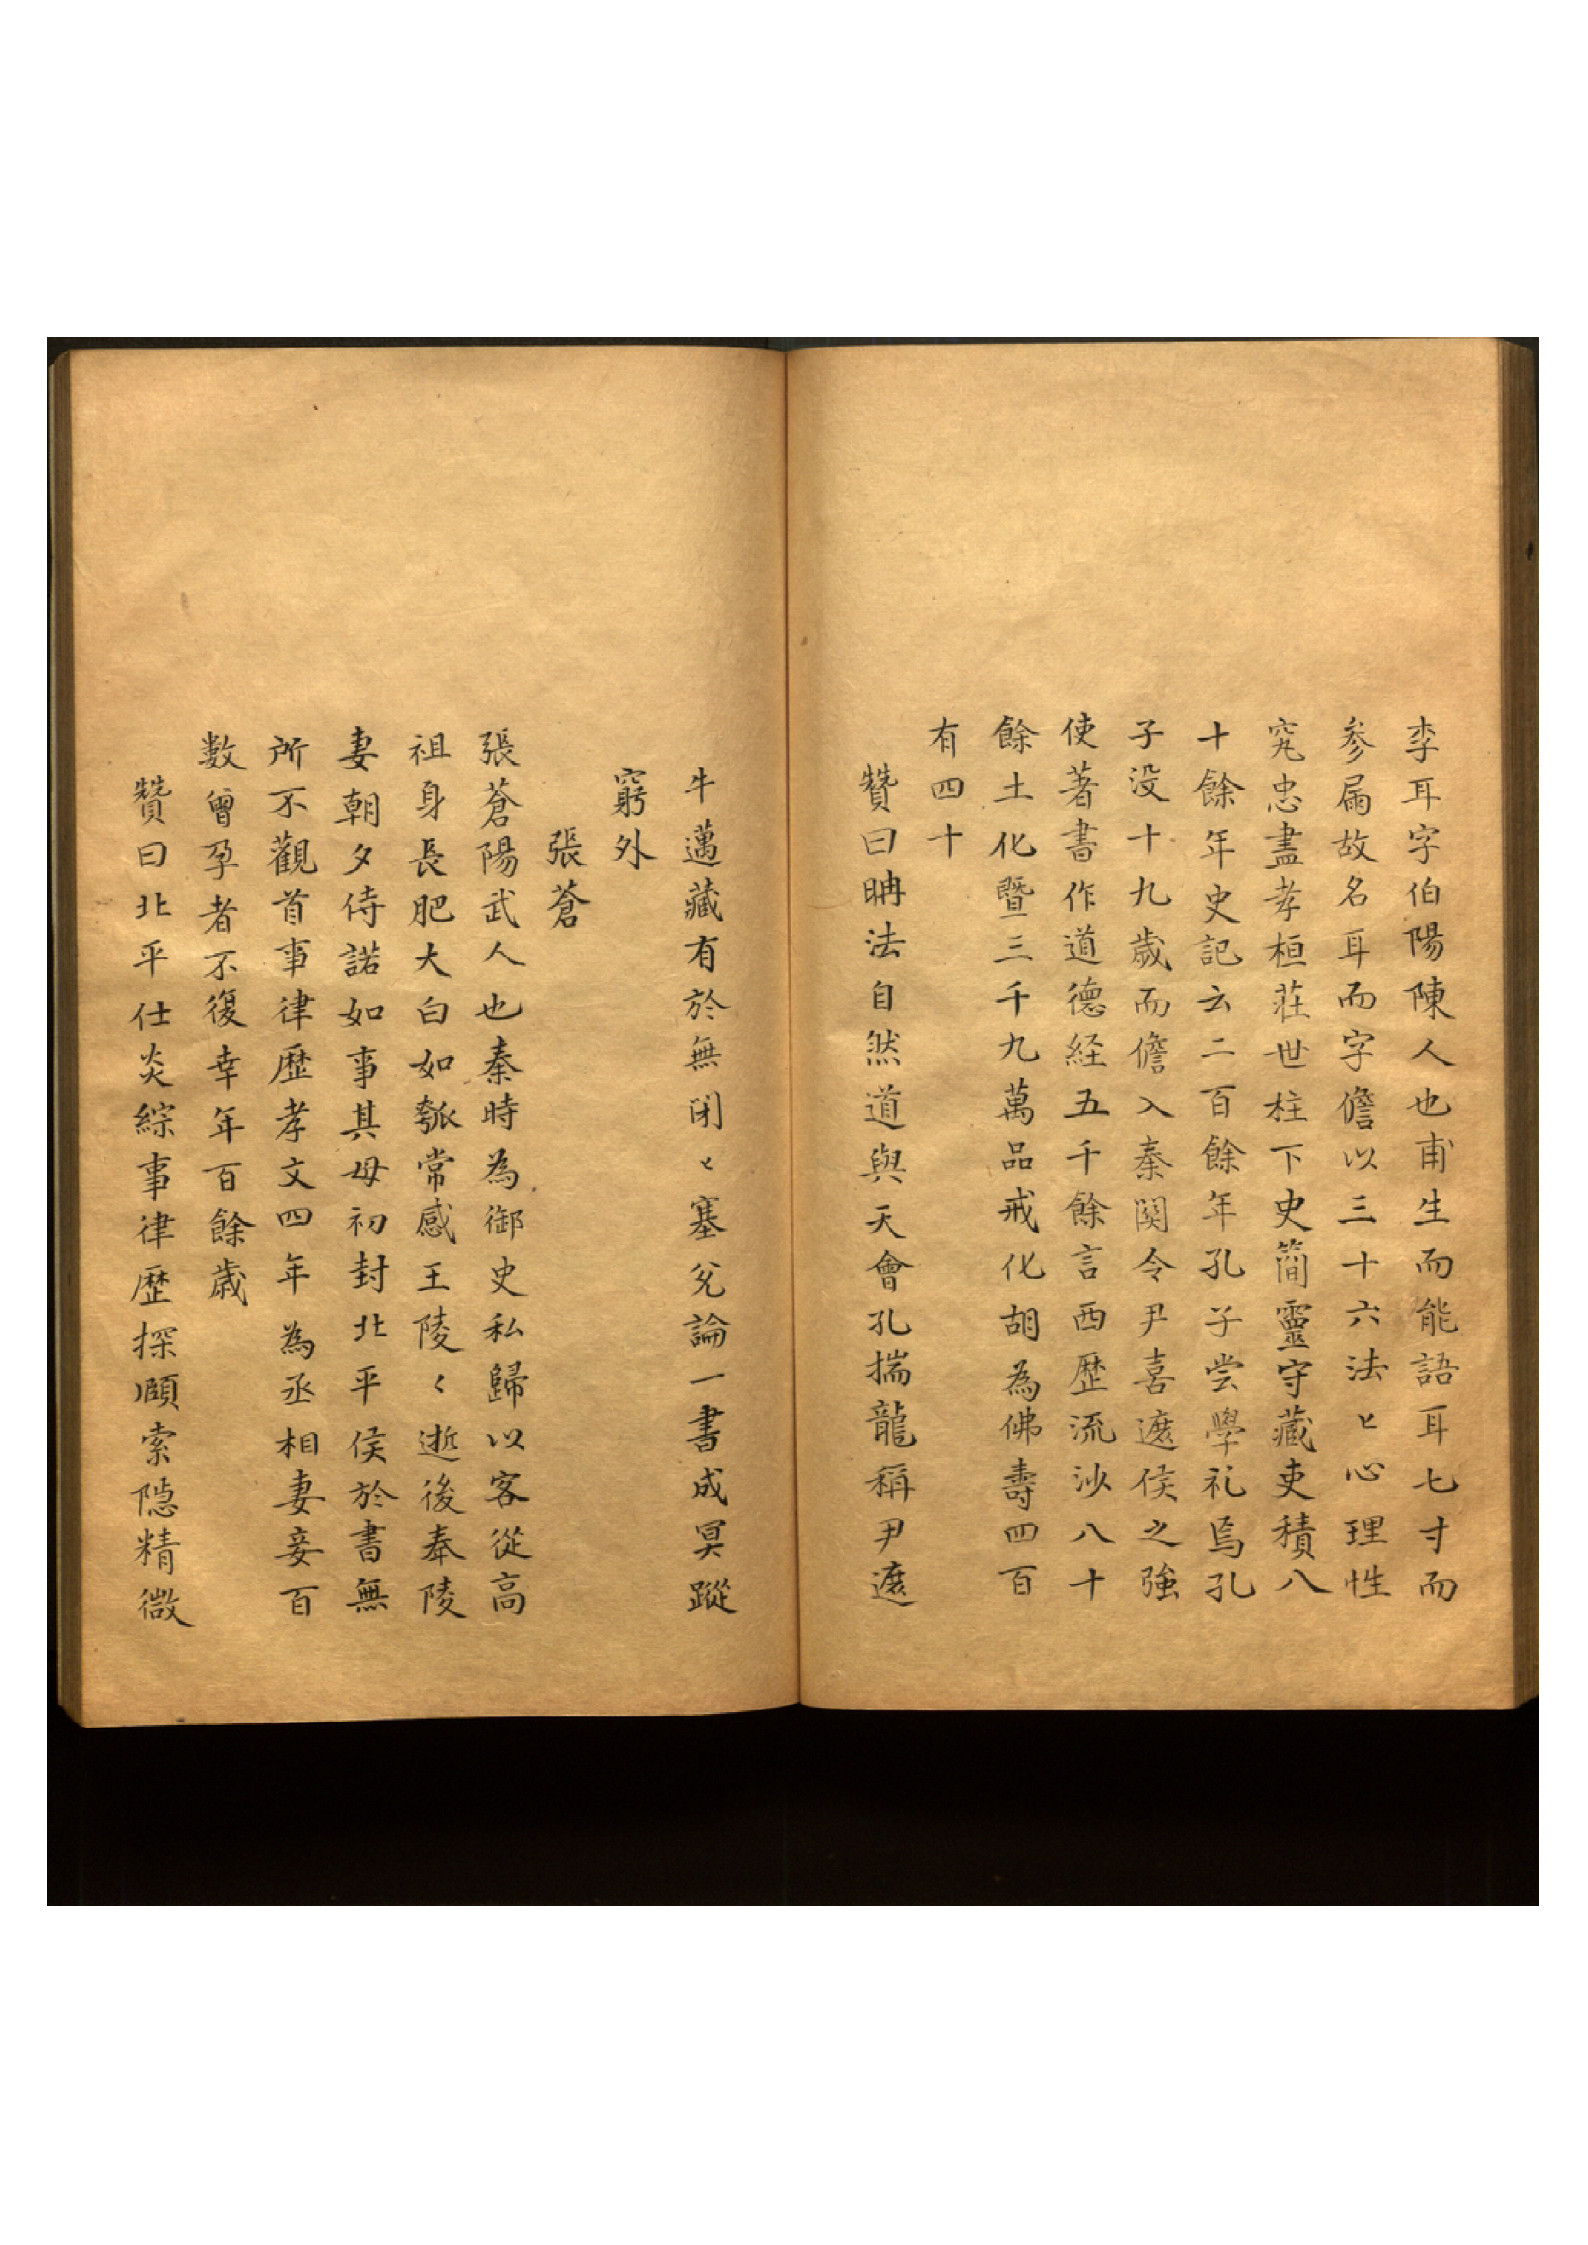 李耳字伯陽陳人也甫生而能語耳七寸而
参扁故名耳而字儋以三十六法〻心理性
究忠盡孝桓荘世柱下史簡靈守藏吏積八
十餘年史記云二百餘年孔子尝學礼焉孔
子没十九歳而儋入秦関令尹喜遮侯之強
使著書作道德経五千餘言西歴流沙八十
餘土化曁三千九萬品戒化胡為佛壽四百
有四十
贊曰明法自然道與天會孔揣龍稱尹遮
牛邁藏有於無閉〻塞兌論一書成冥蹤
窮外
張蒼
張蒼陽武人也秦時為御史私歸以客從高
祖身長肥大白如瓠常感王陵〻逝後奉陵
妻朝夕侍諾如事其母初封北平侯於書無
所不觀首事律歴孝文四年為丞相妻妾百
數曾孕者不復幸年百餘歳
贊曰北平仕炎綜事律歴探頤索隠精微